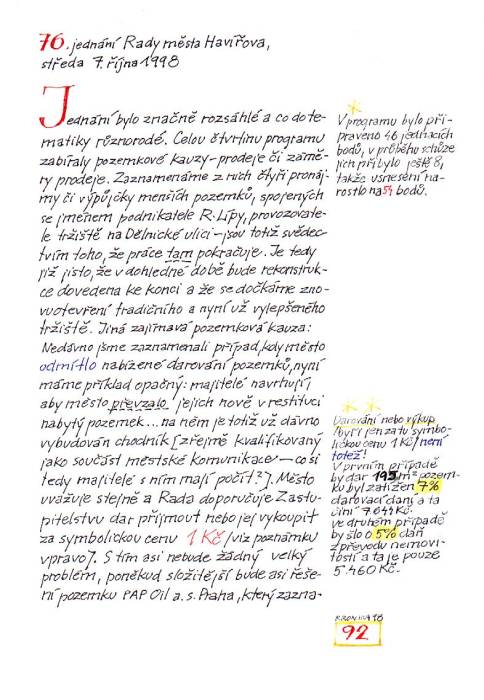 76. jednání Rady města Havířova,
středa 7. října 1998
Jednání bylo značně rozsáhlé a co do te-
matiky různorodé. Celou čtvrtinu programu
zabíraly pozemkové kauzy - prodeje či zámě-
ry prodeje. Zaznamenáme z nich čtyři pronáj-
my či výpůjčky menších pozemků, spojených
se jménem podnikatele R. Lípy, provozovate-
le tržiště na Dělnické ulici - jsou totiž svědec-
tvím toho, že práce tam pokračuje. Je tedy
již jisto, že v dohledné době bude rekonstruk-
ce dovedena ke konci a že se dočkáme zno-
vuotevření tradičního a nyní už vylepšeného
tržiště. Jiná zajímavá pozemková kauza:
Nedávno jsme zaznamenali případ, kdy město
odmítlo nabízené darování pozemků, nyní
máme příklad opačný: majitelé navrhují,
aby město převzalo jejich nově v restituci
nabytý pozemek... na něm je totiž už dávno
vybudován chodník [zřejmě kvalifikovaný
jako součást městské komunikace - co si
tedy majitelé s ním mají počít?]. Město
uvažuje stejně a Rada doporučuje Zastu-
pitelstvu dar přijmout nebo jej vykoupit
za symbolickou cenu 1 Kč /viz poznámku
vpravo/. S tím asi nebude žádný velký
problém, poněkud složitější bude asi řeše-
ní pozemku PAP Oil a. s. Praha, který zazna-
*
V programu bylo při-
praveno 46 jednacích
bodů, v průběhu schůze
jich přibylo ještě 8,
takže usnesení na-
rostlo na 54 bodů.
* *
Darování nebo výkup
/byť i jen za tu symbo-
lickou cenu 1 Kč/ není
totéž!
V prvním případě
by dar 195 m² pozem-
ku byl zatížen 7%
darovací daní a ta
činí 7.644 Kč.
ve druhém případě
by šlo o 5% daň
z převodu nemovi-
tostí a ta je pouze
5.460 Kč.
KRONIKA 98
92